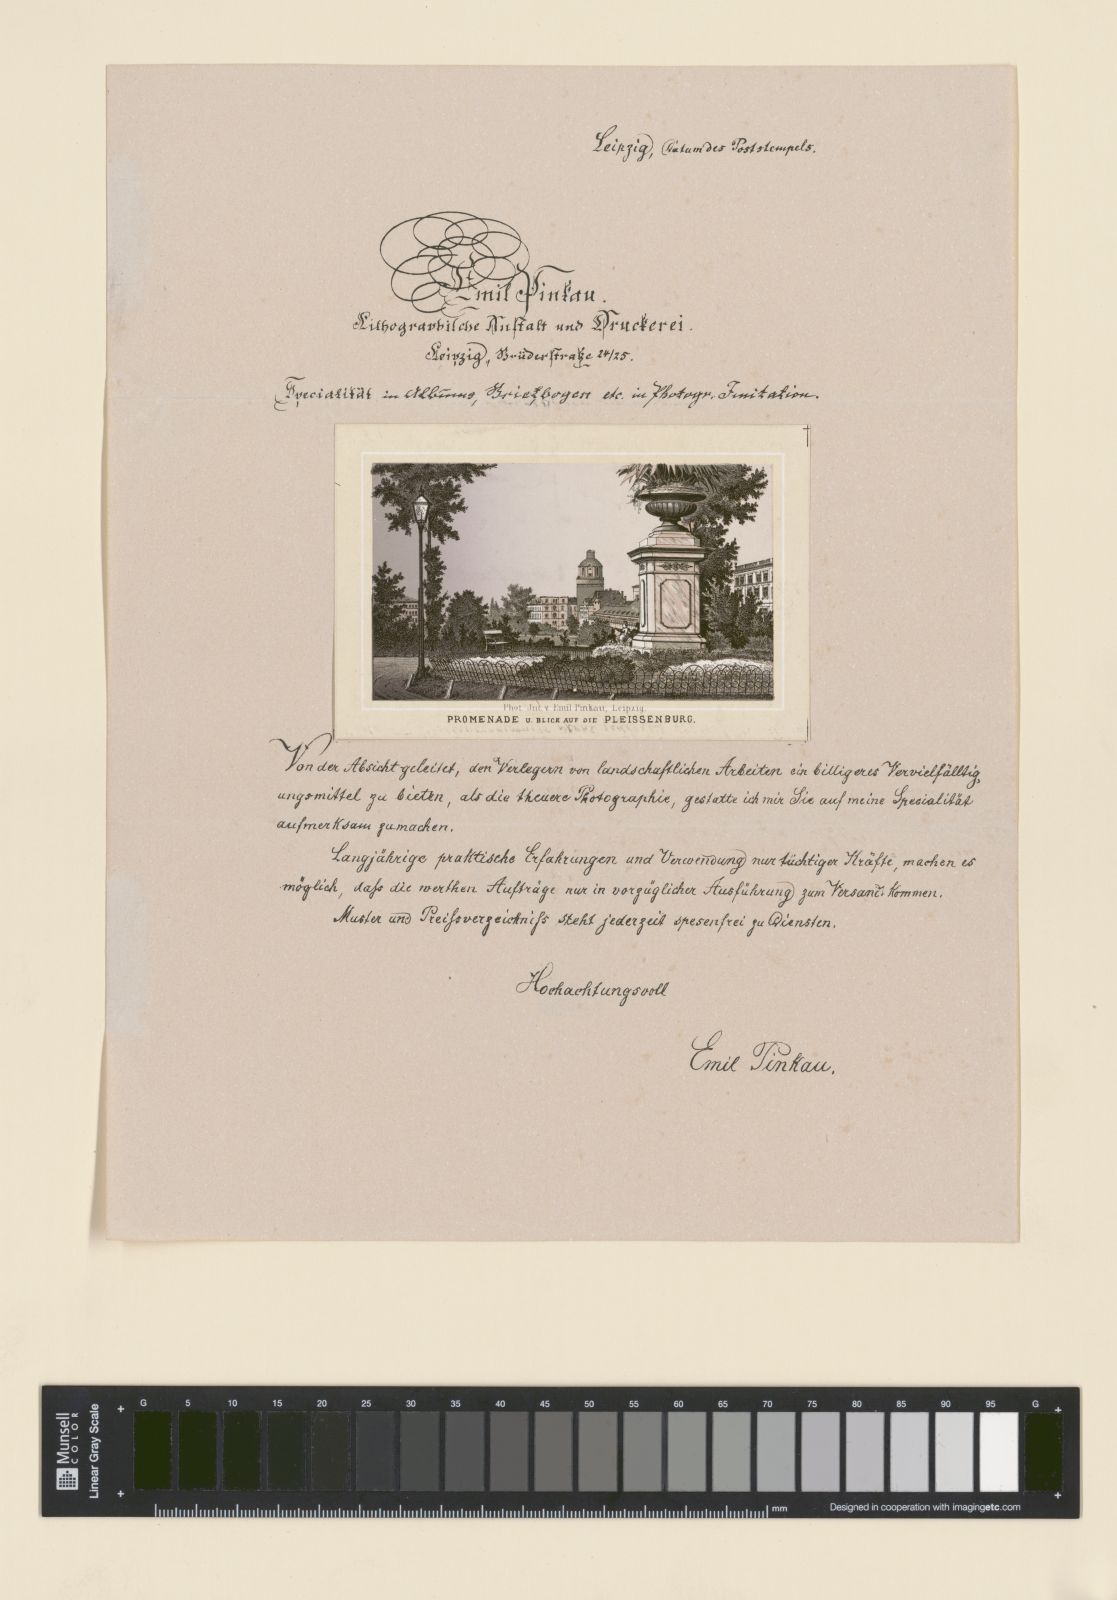 Leipzig, Datum des Poststempels.
Emil Pinkau.
Lithographische Anstalt und Druckerei.
Leipzig, Brüderstraße 24/25.
Specialität in Albums, Briefbogen etc. in Photogr. Imitation.
Phot. Imt. v. Emil Pinkau, Leipzig.
PROMENADE U. BLICK AUF DIE PLEISSENBURG.
Von der Absicht geleitet, den Verlegern von landschaftlichen Arbeiten ein billigeres Vervielfälltig,
ungsmittel zu bieten, als die theuere Photographie, gestatte ich mir Sie auf meine Specialität
aufmerksam zu machen.
Langjährige praktische Erfahrungen und Verwendung nur tüchtiger Kräfte, machen es
möglich, dass die werthen Aufträge nur in vorzüglicher Ausführung zum Versandt kommen.
Muster und Preissverzeichniss steht jederzeit spesenfrei zu Diensten.
Hochachtungsvoll
Emil Pinkau.
Munsell
COLOR
Linear Gray Scale
G 5 10 15 20 25 30 35 40 45 50 55 60 65 70 75 80 85 90 95 G
mm
Designed in cooperation with imagingetc.com